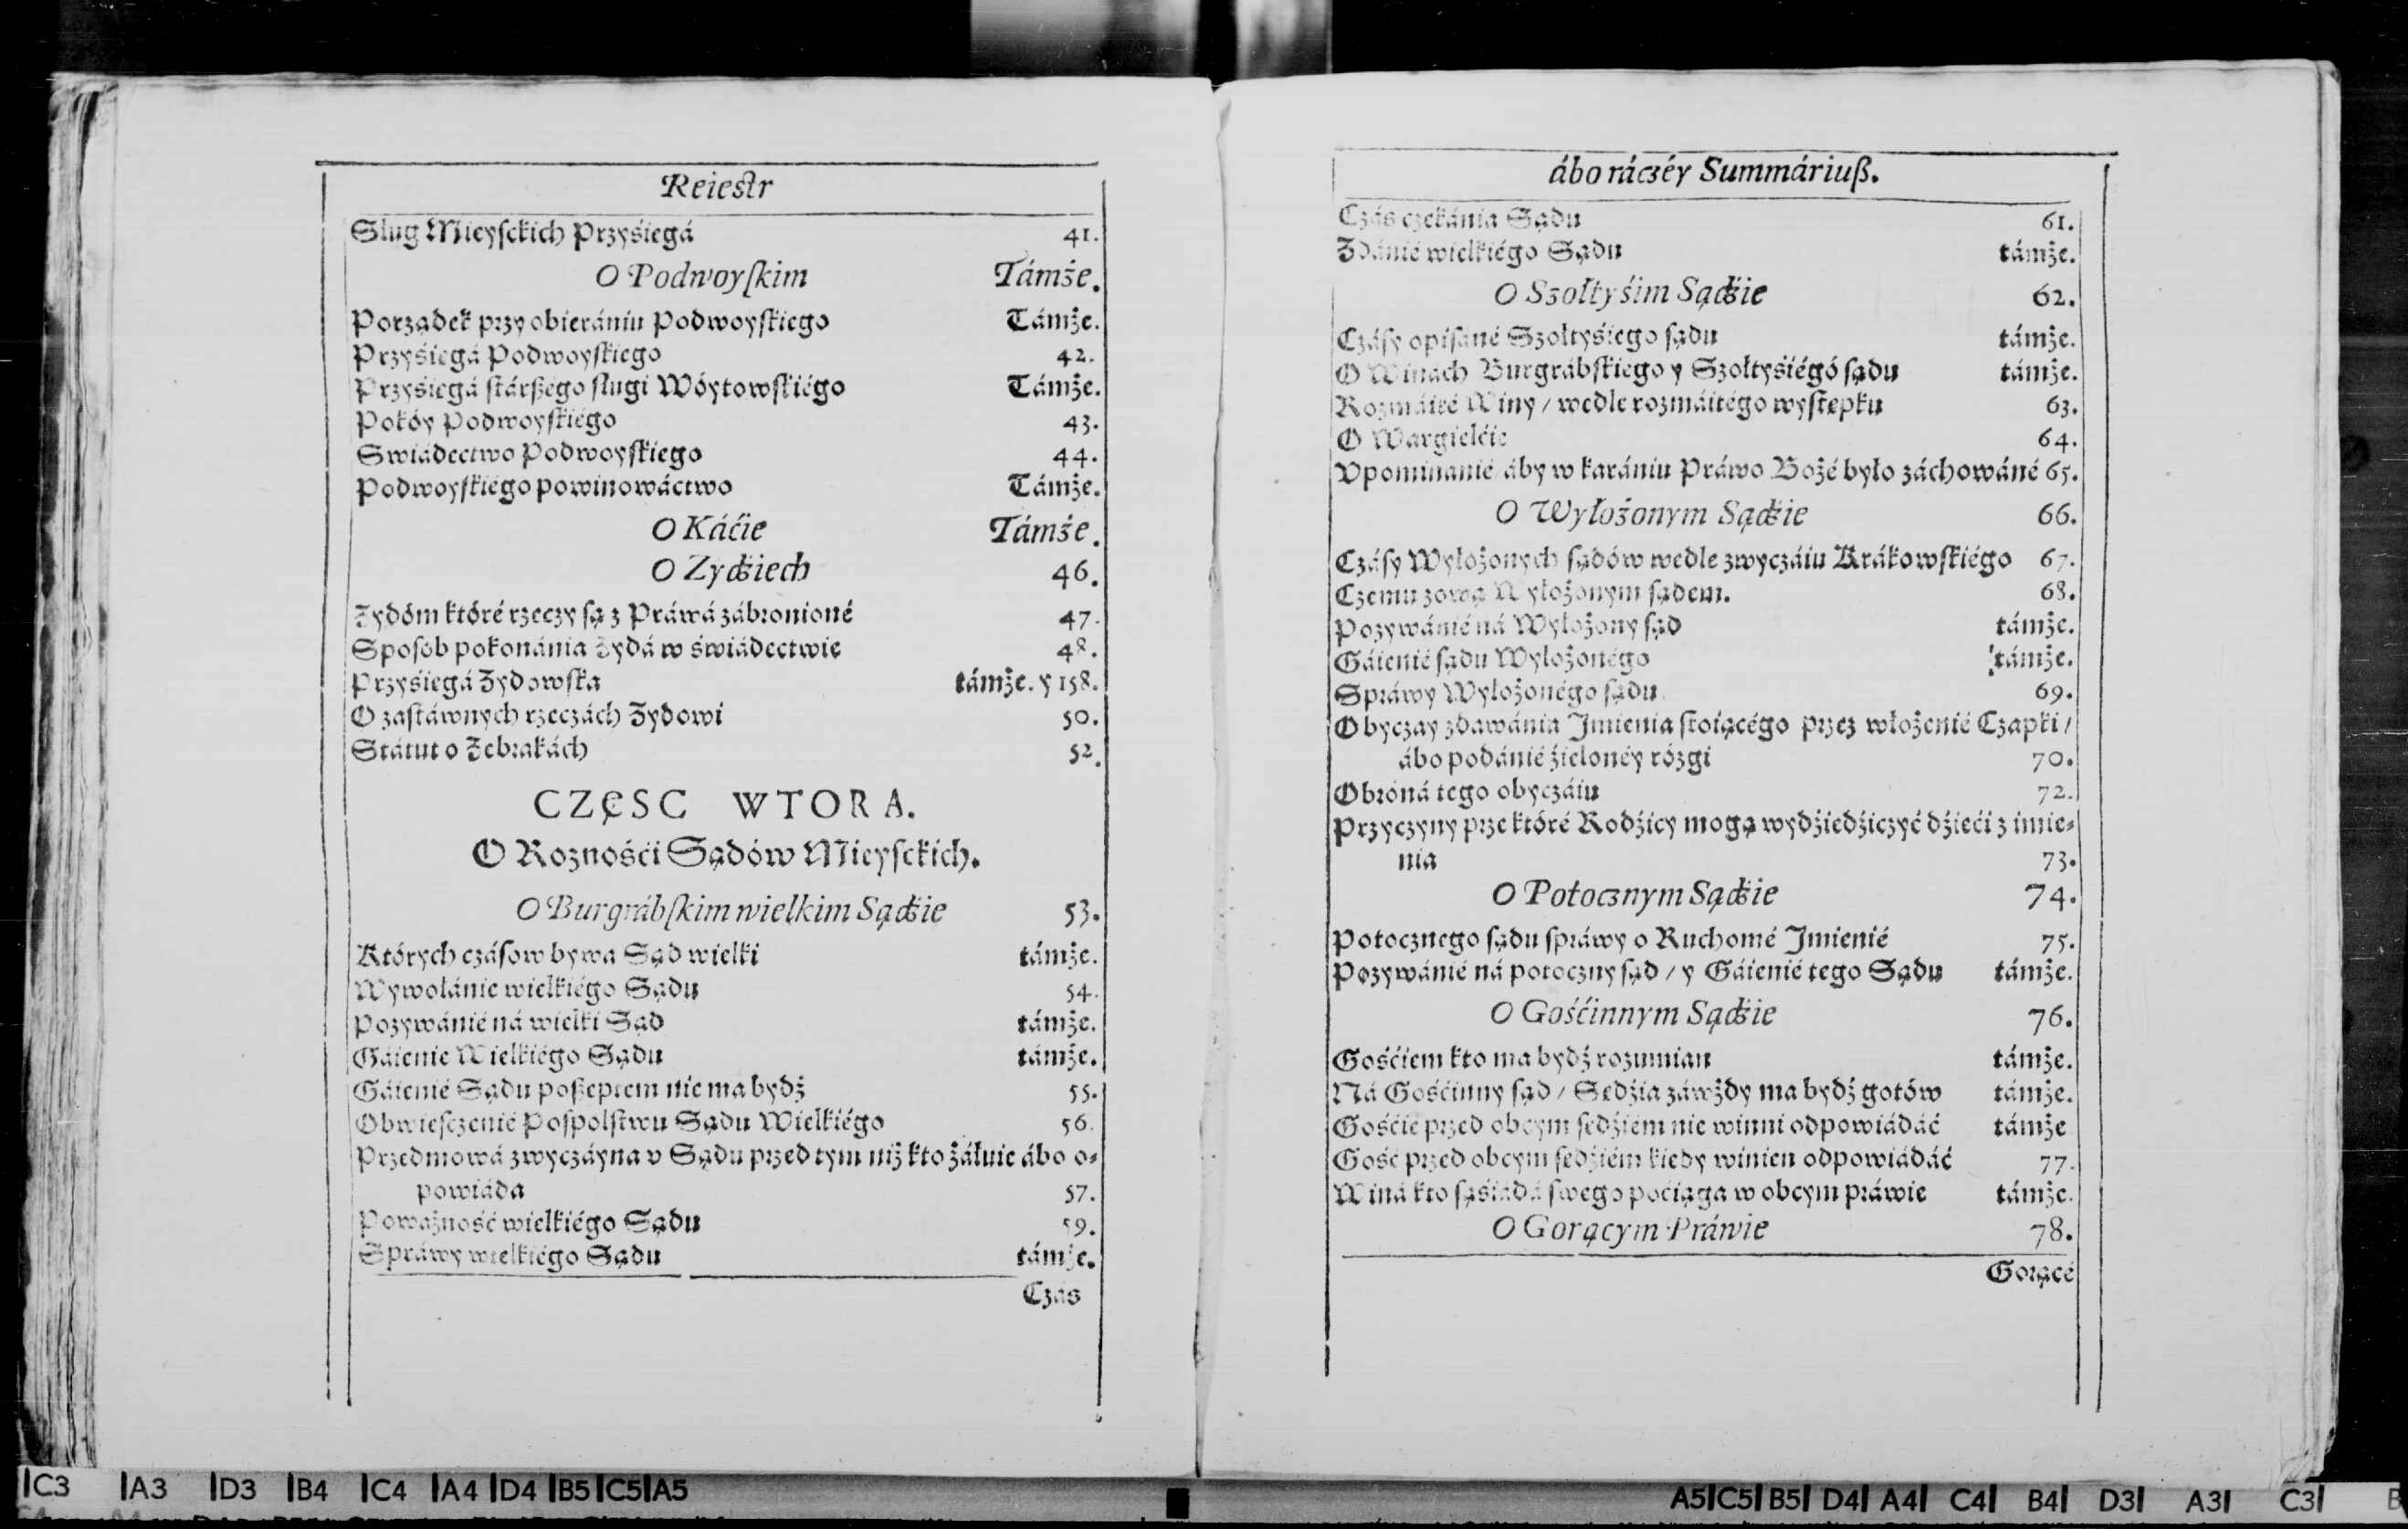 Reiestr
Slug Mieysckich Przyśiegá 41.
O Podwoyskim Támże.
Porządek przy obierániu Podwoyskiego Támże.
Przyśiegá Podwoyskiego 42.
Przyśiegá stárßégo slugi Wóytowskiégo Támże.
Pokóy Podwoyskiégo 43.
Swiádectwo Podwoyskiego 44.
Podwoyskiégo powinowáctwo Támże.
O Káćie Támże.
O Zydźiech 46.
Żydóm któré rzeczy są z Práwá zábronioné 47.
Sposob pokonánia Żydá w świádectwie 48.
Przyśiegá Żydowska támże. y 158.
O zastáwnych rzeczách Żydowi 50.
Státut o Żebrakách 52.
CZĘSC WTORA.
O Roznośći Sądów Mieysckich.
O Burgrábskim wielkim Sądźie 53.
Których czásow bywa Sąd wielki támże.
Wywolánie wielkiégo Sądu 54.
Pozywánié ná wielki Sąd támże.
Gáienie Wielkiégo Sądu támże.
Gáienié Sądu poßeptem nie ma bydź 55.
Obwiesczenié Pospolstwu Sądu Wielkiégo 56.
Przedmowá zwyczáyna v Sądu przed tym niż kto żáłuie ábo o-
powiáda 57.
Poważność wielkiégo Sądu 59.
Spráwy wielkiégo Sądu támże.
Czás
ábo ráczéy Summáriuß.
Czás czekánia Sądu 61.
Zdánié wielkiégo Sądu támże.
O Szołtyśim Sądźie 62.
Czásy opisané Szołtyśiego sądu támże.
O Winách Burgrábskiego y Szołtyśiégó sądu támże.
Rozmáité Winy / wedle rozmáitégo występku 63.
O Wargielćie 64.
Vpominanié áby w karániu Práwo Bożé było záchowáné 65.
O Wyłożonym Sądźie 66.
Czásy Wyłożonych sądów wedle zwyczáiu Krákowskiégo 67.
Czemu zową Wyłożonym sądem. 68.
Pozywánié ná Wyłożony sąd támże.
Gáienié sądu Wyłożonégo támże.
Spráwy Wyłożonégo sądu 69.
Obyczay zdawánia Jmienia stoiącégo przez włożenié Czapki /
ábo podánié źielonéy rózgi 70.
Obroná tego obyczáiu 72.
Przyczyny prze któré Rodźicy mogą wydźiedźiczyć dźieći z imie-
nia 73.
O Potocznym Sądźie 74.
Potocznego sądu spráwy o Ruchomé Jmienié 75.
Pozywánié ná potoczny sąd / y Gáienié tego Sądu támże.
O Gośćinnym Sądźie 76.
Gośćiem kto ma bydź rozumian támże.
Ná Gośćinny sąd / Sedźia záwżdy ma bydź gotów támże.
Gośćie przed obcym sedźiem nie winni odpowiádáć támże
Gość przed obcym sedźiém kiedy winien odpowiádáć 77.
Winá kto sąśiadá swego poćiąga w obcym práwie támże.
O Gorącym Práwie 78.
Gorącé
C3 A3 D3 B4 C4 A4 D4 B5 C5 A5
A5 C5 B5 D4 A4 C4 B4 D3 A3 C3 B